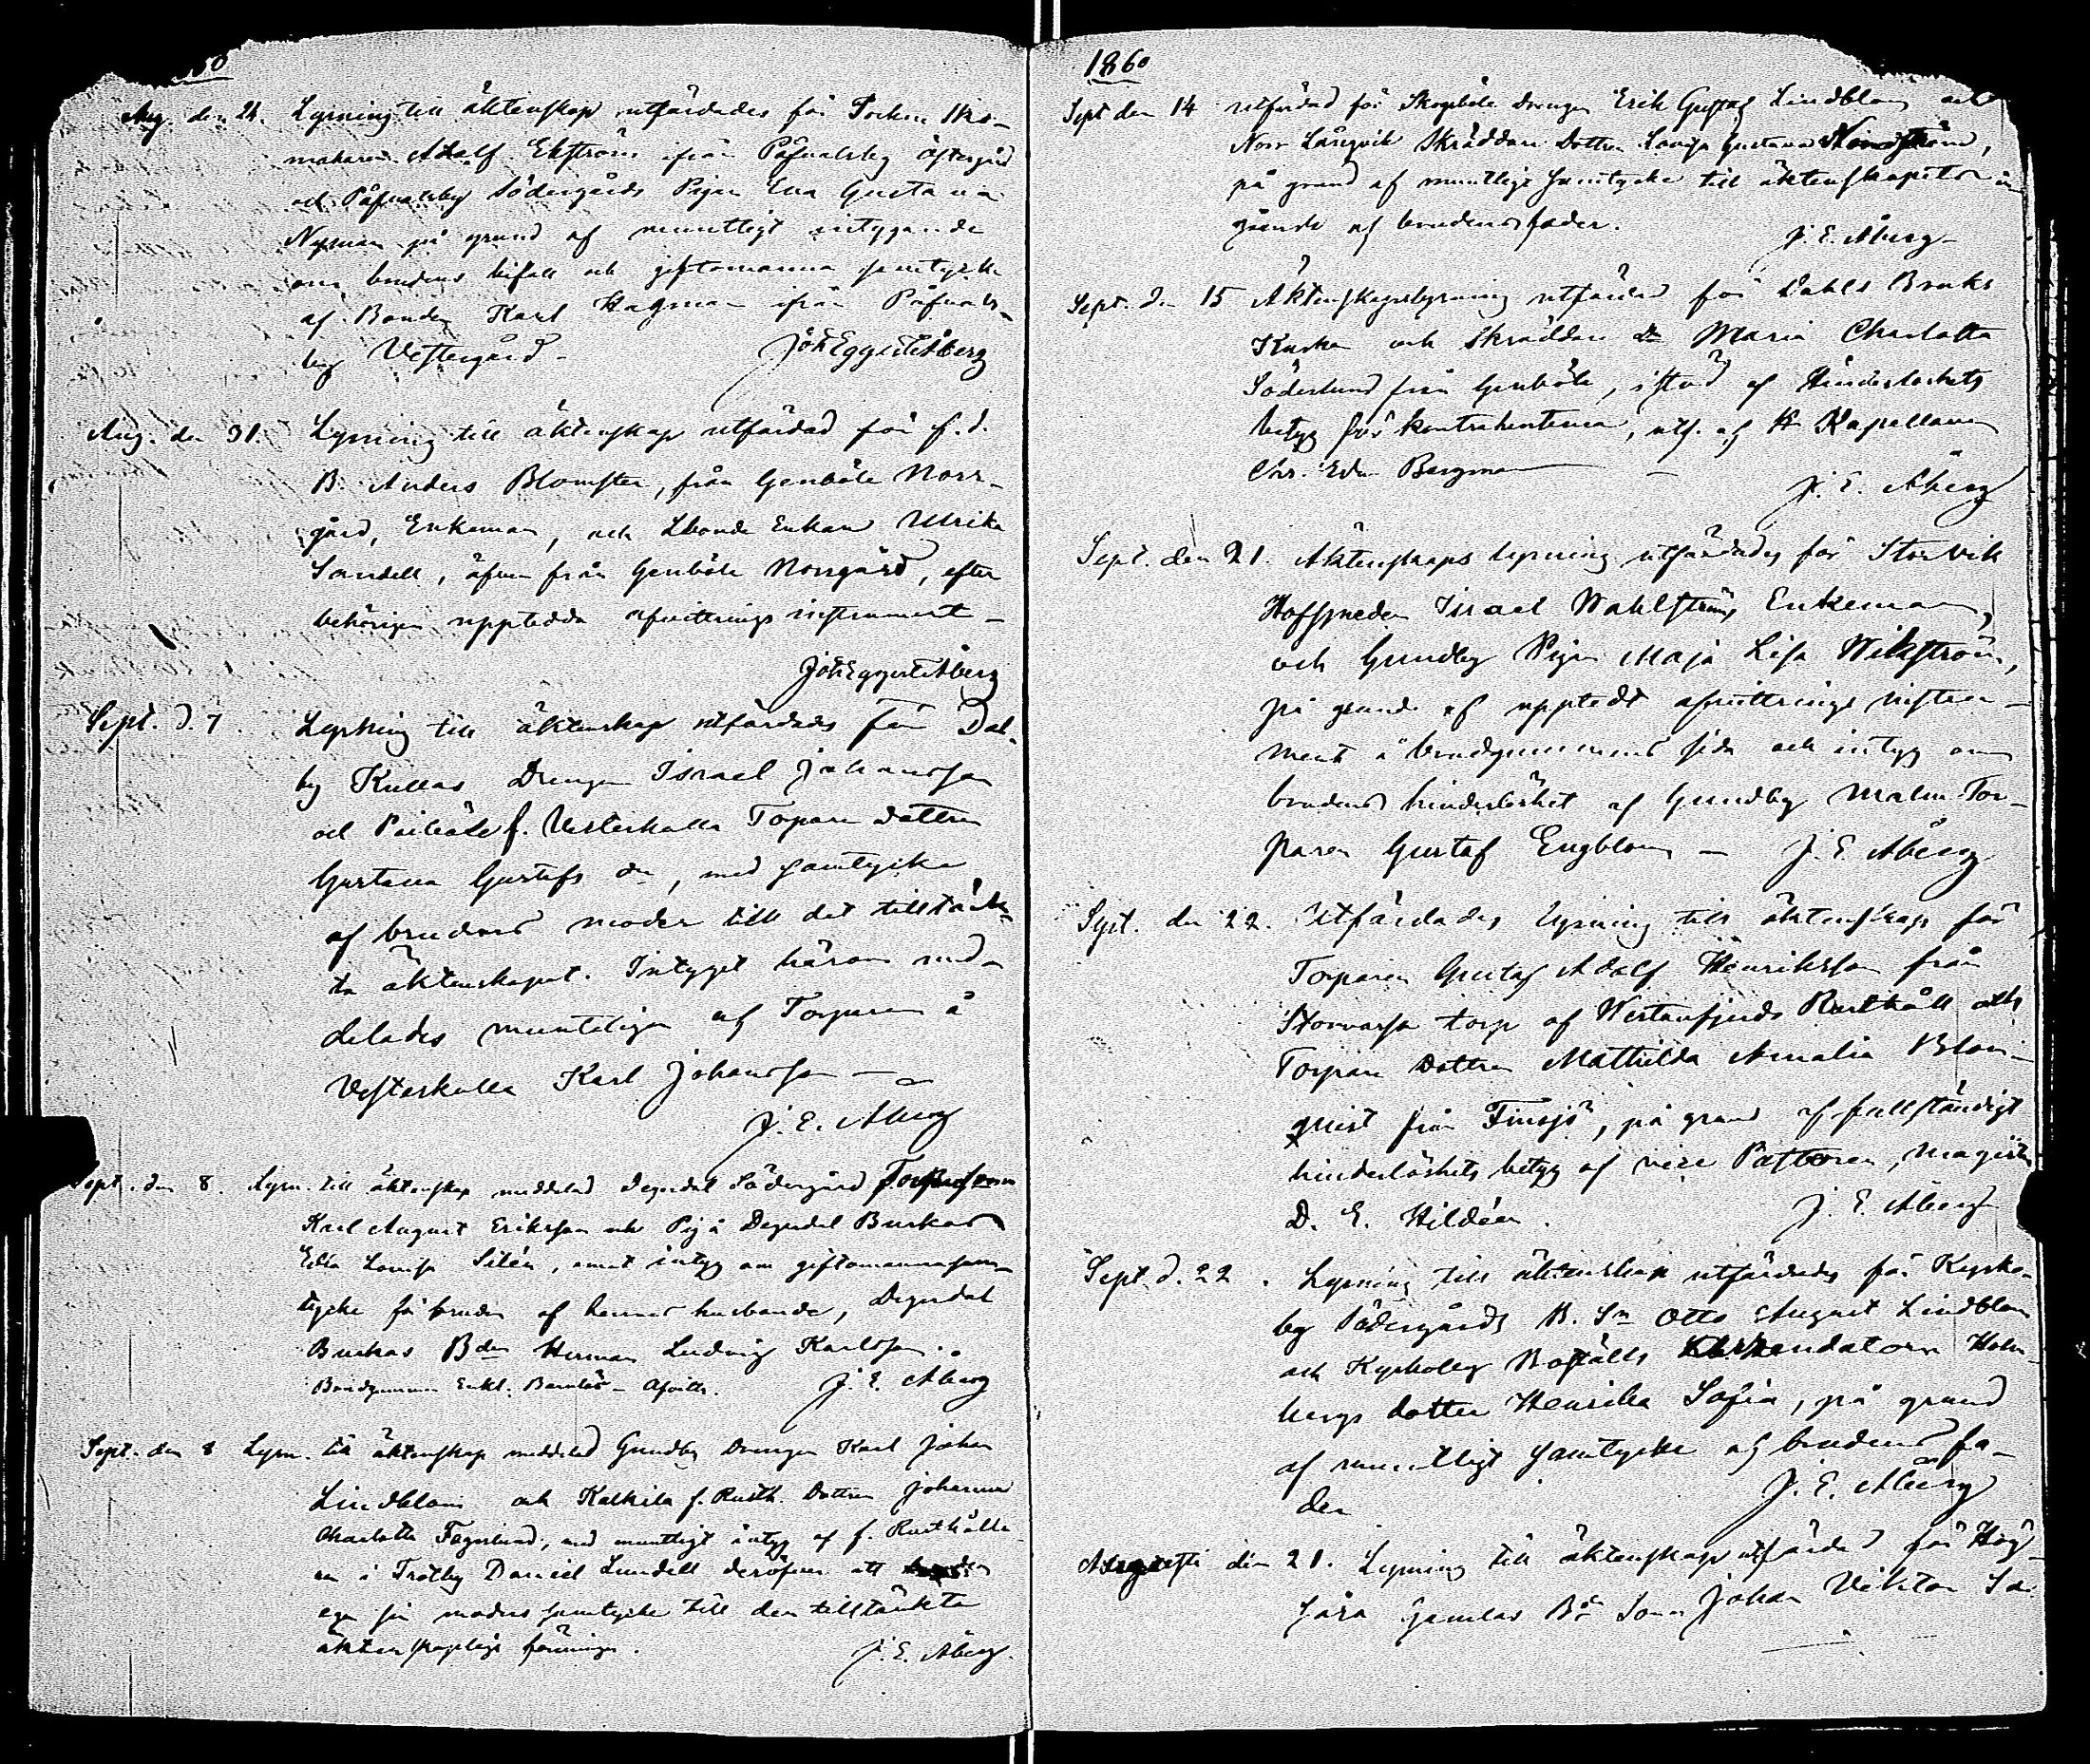 60
Aug. den 24. Lysning till äktenskap utfärdades för Socken Sko-
makaren Adolf Ekström ifrån Påfvalsby Östergård
och Påfvalsby Södergårds Pigan Eva Gustava
Nyman på grund af muntligt intygande
om brudens bifall och giftomanna samtycke
af Bonden Karl Hagman ifrån Påfvals-
by Vestergård. Joh Eggert Åberg
Aug. den 31. Lysning till äktenskap utfärdad för f.d.
B. Anders Blomster, från Genböle Norr-
gård, Enkeman, och Lbonde Enkan Ulrika
Sandell, äfven från Genböle Norrgård, efter
behörigen uppteedda afvittrings instrument
Joh Eggert Åberg
Sept. d. 7. Lysning till äktenskap utfärdads för Dal-
by Kullas Drengen Israel Johansson
och Vesterkulla Torpare dottren
Gustava Gustafs dr, med samtycke
af brudens moder till det tilltänk-
ta äktenskapet. Intyget härom med-
delades munteligen af Torparen å
Vesterkulla Karl Johansson
J. E. Åberg
Sept. den 8. Lysn. till äktenskap meddelad Degerdal Södergård
Karl August Eriksson och Pig. å Degerdal Buskas
Edla Lovisa Silén, emot intyg om giftomannasam-
tycke för bruden af hennes husbonde, Degerdal
Buskas Bden Herman Ludvig Karlsson.
Brudgummen Enkl. Barnlös - Afvittr. J. E. Åberg
Sept. den 8 Lysn. till äktenskap meddelad Gundby Drengen Karl Johan
Lindblom och Kalkila f. Rusth. Dottren Johanna
Charlotta Fagerlund, med muntligt intyg af f. Rusthålla-
ren i Trotby Daniel Lundell deröfver att bruden
eger sin moders samtycke till den tilltänkta
äktenskapliga föreningen. J. E. Åberg.
1860
Sept den 14 utfärdad för Skogsböle drengen Erik Gustaf Lindblom och
Norr Långvik Skräddare Dottren Lovisa Gustava
på grund af muntlige samtycke till äktenskapet
af brudens fader. J. E. Åberg
Sept. d. 15 Äktenskapslysning utfärdad för Dahls Bruks
Kusken och Skräddare dr Maria Charlotta
Söderlund från Genböle, i stöd af Hinderlöshets
betyg för kontrahenterna, utf. af Hr Kapellanen
Chr. Edv. Bergman J. E. Åberg
Sept. den 21. Äktenskaps lysning utfärdades för Storvik
Hofsmeden Israel Wahlström, Enkeman,
och Gundby Pigan Maja Lisa Wikström,
på grund af uppteedt afvittrings instru-
ment å brudgummens sida och intyg om
brudens hinderlöshet af Gundby Malm Tor-
paren Gustaf Engblom - J. E. Åberg
Sept. den 22. Utfärdades lysning till äktenskap för
Torparen Gustaf Adolf Henriksson från
Storvassa torp af Westanfjerds Rusthåll och
Torpare Dottren Mathilda Amalia Blom-
qvist från Finsjö, på grund af fullständigt
hinderlöshets betyg af vice Pastoren, Magister
D. E. Hildéen. J. E. Åberg
Sept. d. 22. Lysning till äktenskap utfärdades för Kyrko-
by Södergårds B. Sn Otto August Lindblom
och Kyrkoby Boställs Holm-
bergs dotter Henrika Sofia, på grund
af muntligt samtycke af brudens fa-
der J. E. Åberg
Augusti den 21. Lysning till äktenskap utfärdad för Hög-
såra Gamlas Bd Sonen Johan Viktor